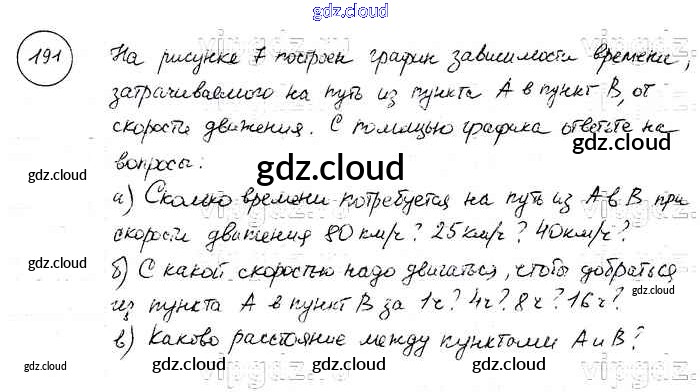 gdz.cloud
191
На рисунке 7 построен график зависимости времени,
затрачиваемого на путь из пункта А в пункт В, от
скорости движения. С помощью графика ответьте на
вопросы:
gdz.cloud
gdz.cloud
gdz.cloud
а) Сколько времени потребуется на путь из А в В при
скорости движения 80 км/ч? 25 км/ч? 40 км/ч?
gdz.cloud
gdz.cloud
б) С какой скоростью надо двигаться, чтобы добраться
из пункта А в пункт В за 1ч? 4ч? 8ч? 16ч?
в) Каково расстояние между пунктами А и В?
gdz.cloud
gdz.cloud
gdz.cloud
gdz.cloud